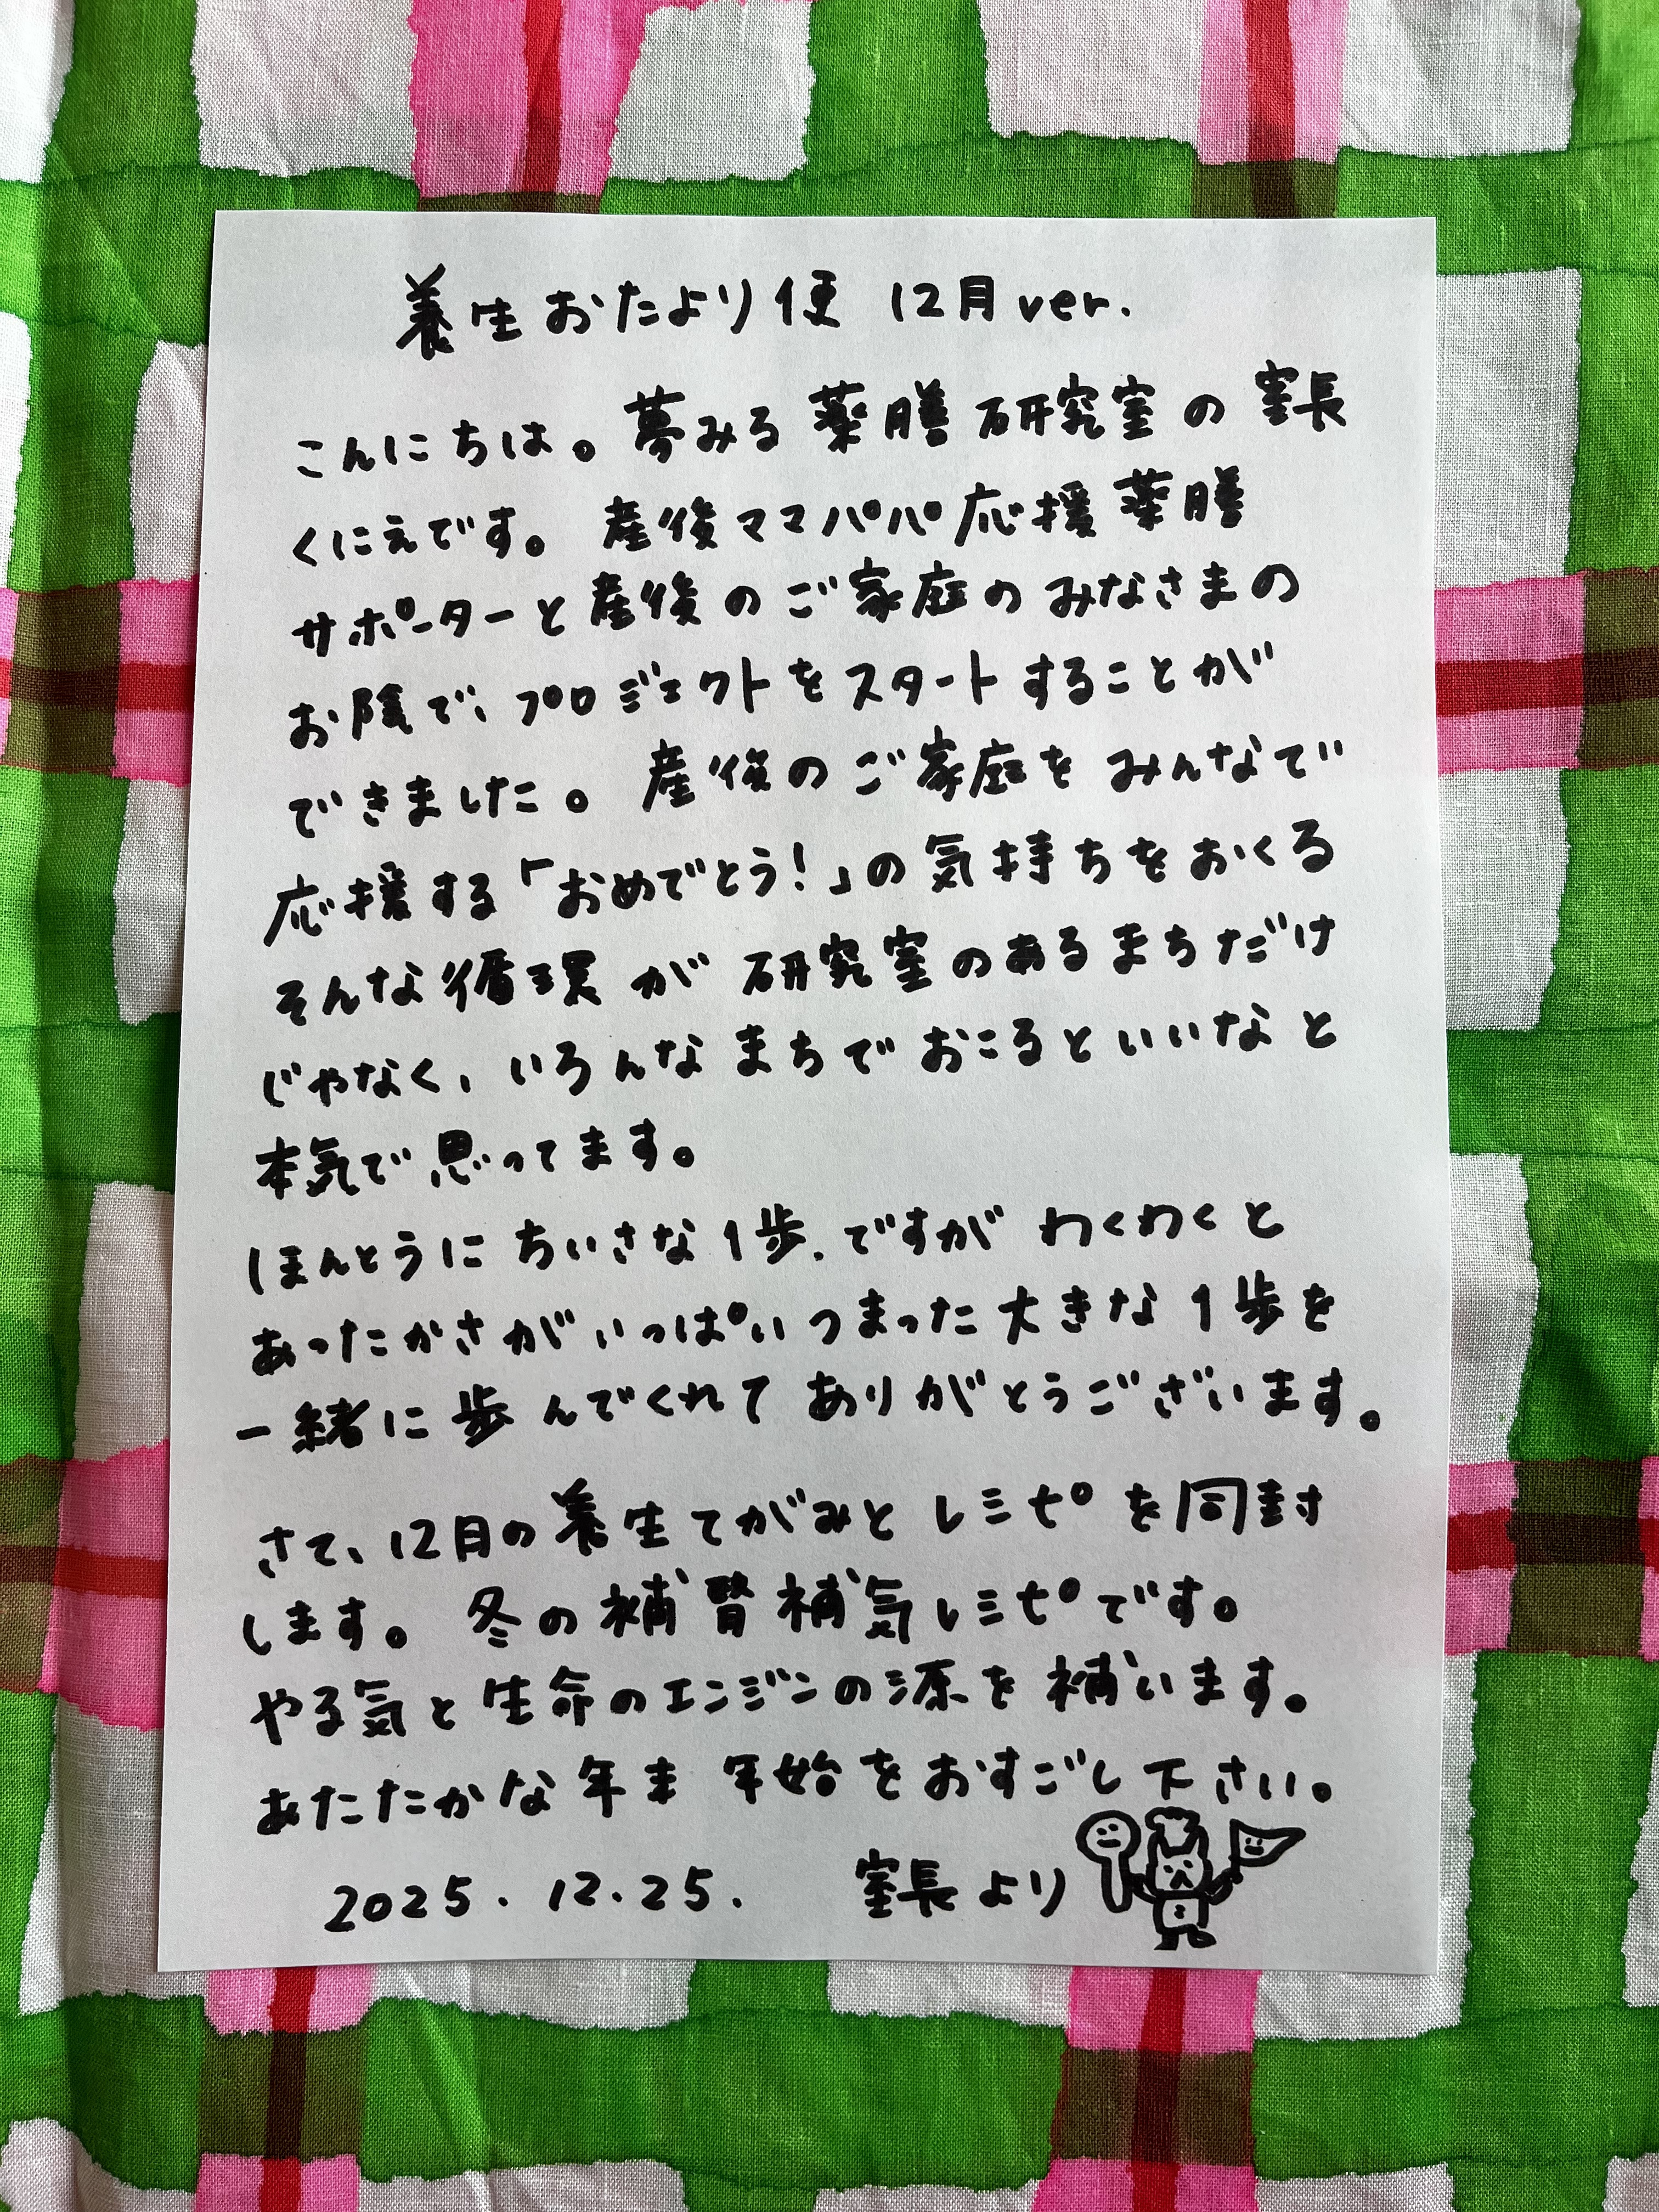 養生おたより便 12月ver.
こんにちは。夢みる薬膳研究室の室長
くにえです。産後ママパパ応援薬膳
サポーターと産後のご家庭のみなさまの
お陰で、プロジェクトをスタートすることが
できました。産後のご家庭をみんなで
応援する「おめでとう!」の気持ちをおくる
そんな循環が研究室のあるまちだけ
じゃなく、いろんなまちでおこるといいなと
本気で思ってます。
ほんとうにちいさな1歩.ですがわくわくと
あったかさがいっぱいつまった大きな1歩を
一緒に歩んでくれてありがとうございます。
さて、12月の養生てがみとレシピを同封
します。冬の補腎補気レシピです。
やる気と生命のエンジンの源を補います。
あたたかな年末年始をおすごし下さい。
2025.12.25. 室長より